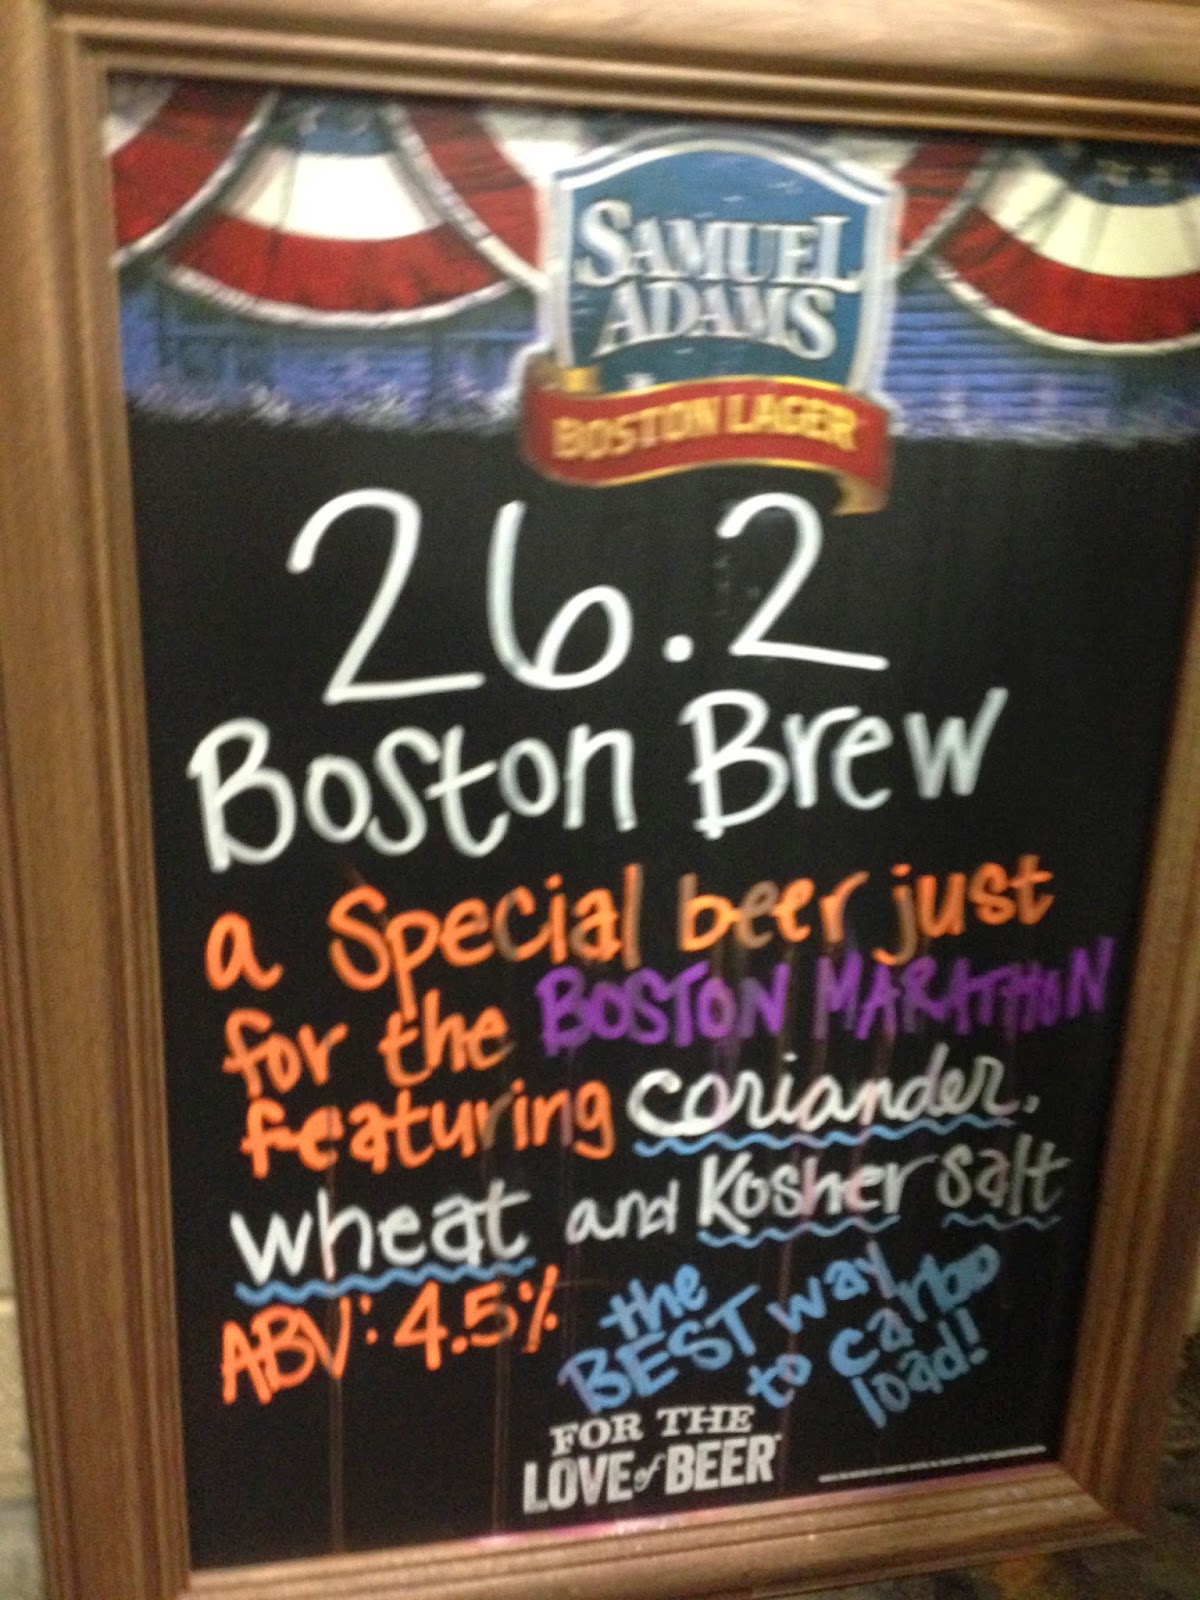 SAMUEL
ADAMS
BOSTON LAGER
26.2
Boston Brew
a special beer just
for the BOSTON MARATHON
featuring coriander,
wheat and Kosher salt
ABV: 4.5%
the
BEST way
to carbo
load!
FOR THE
LOVE of BEER